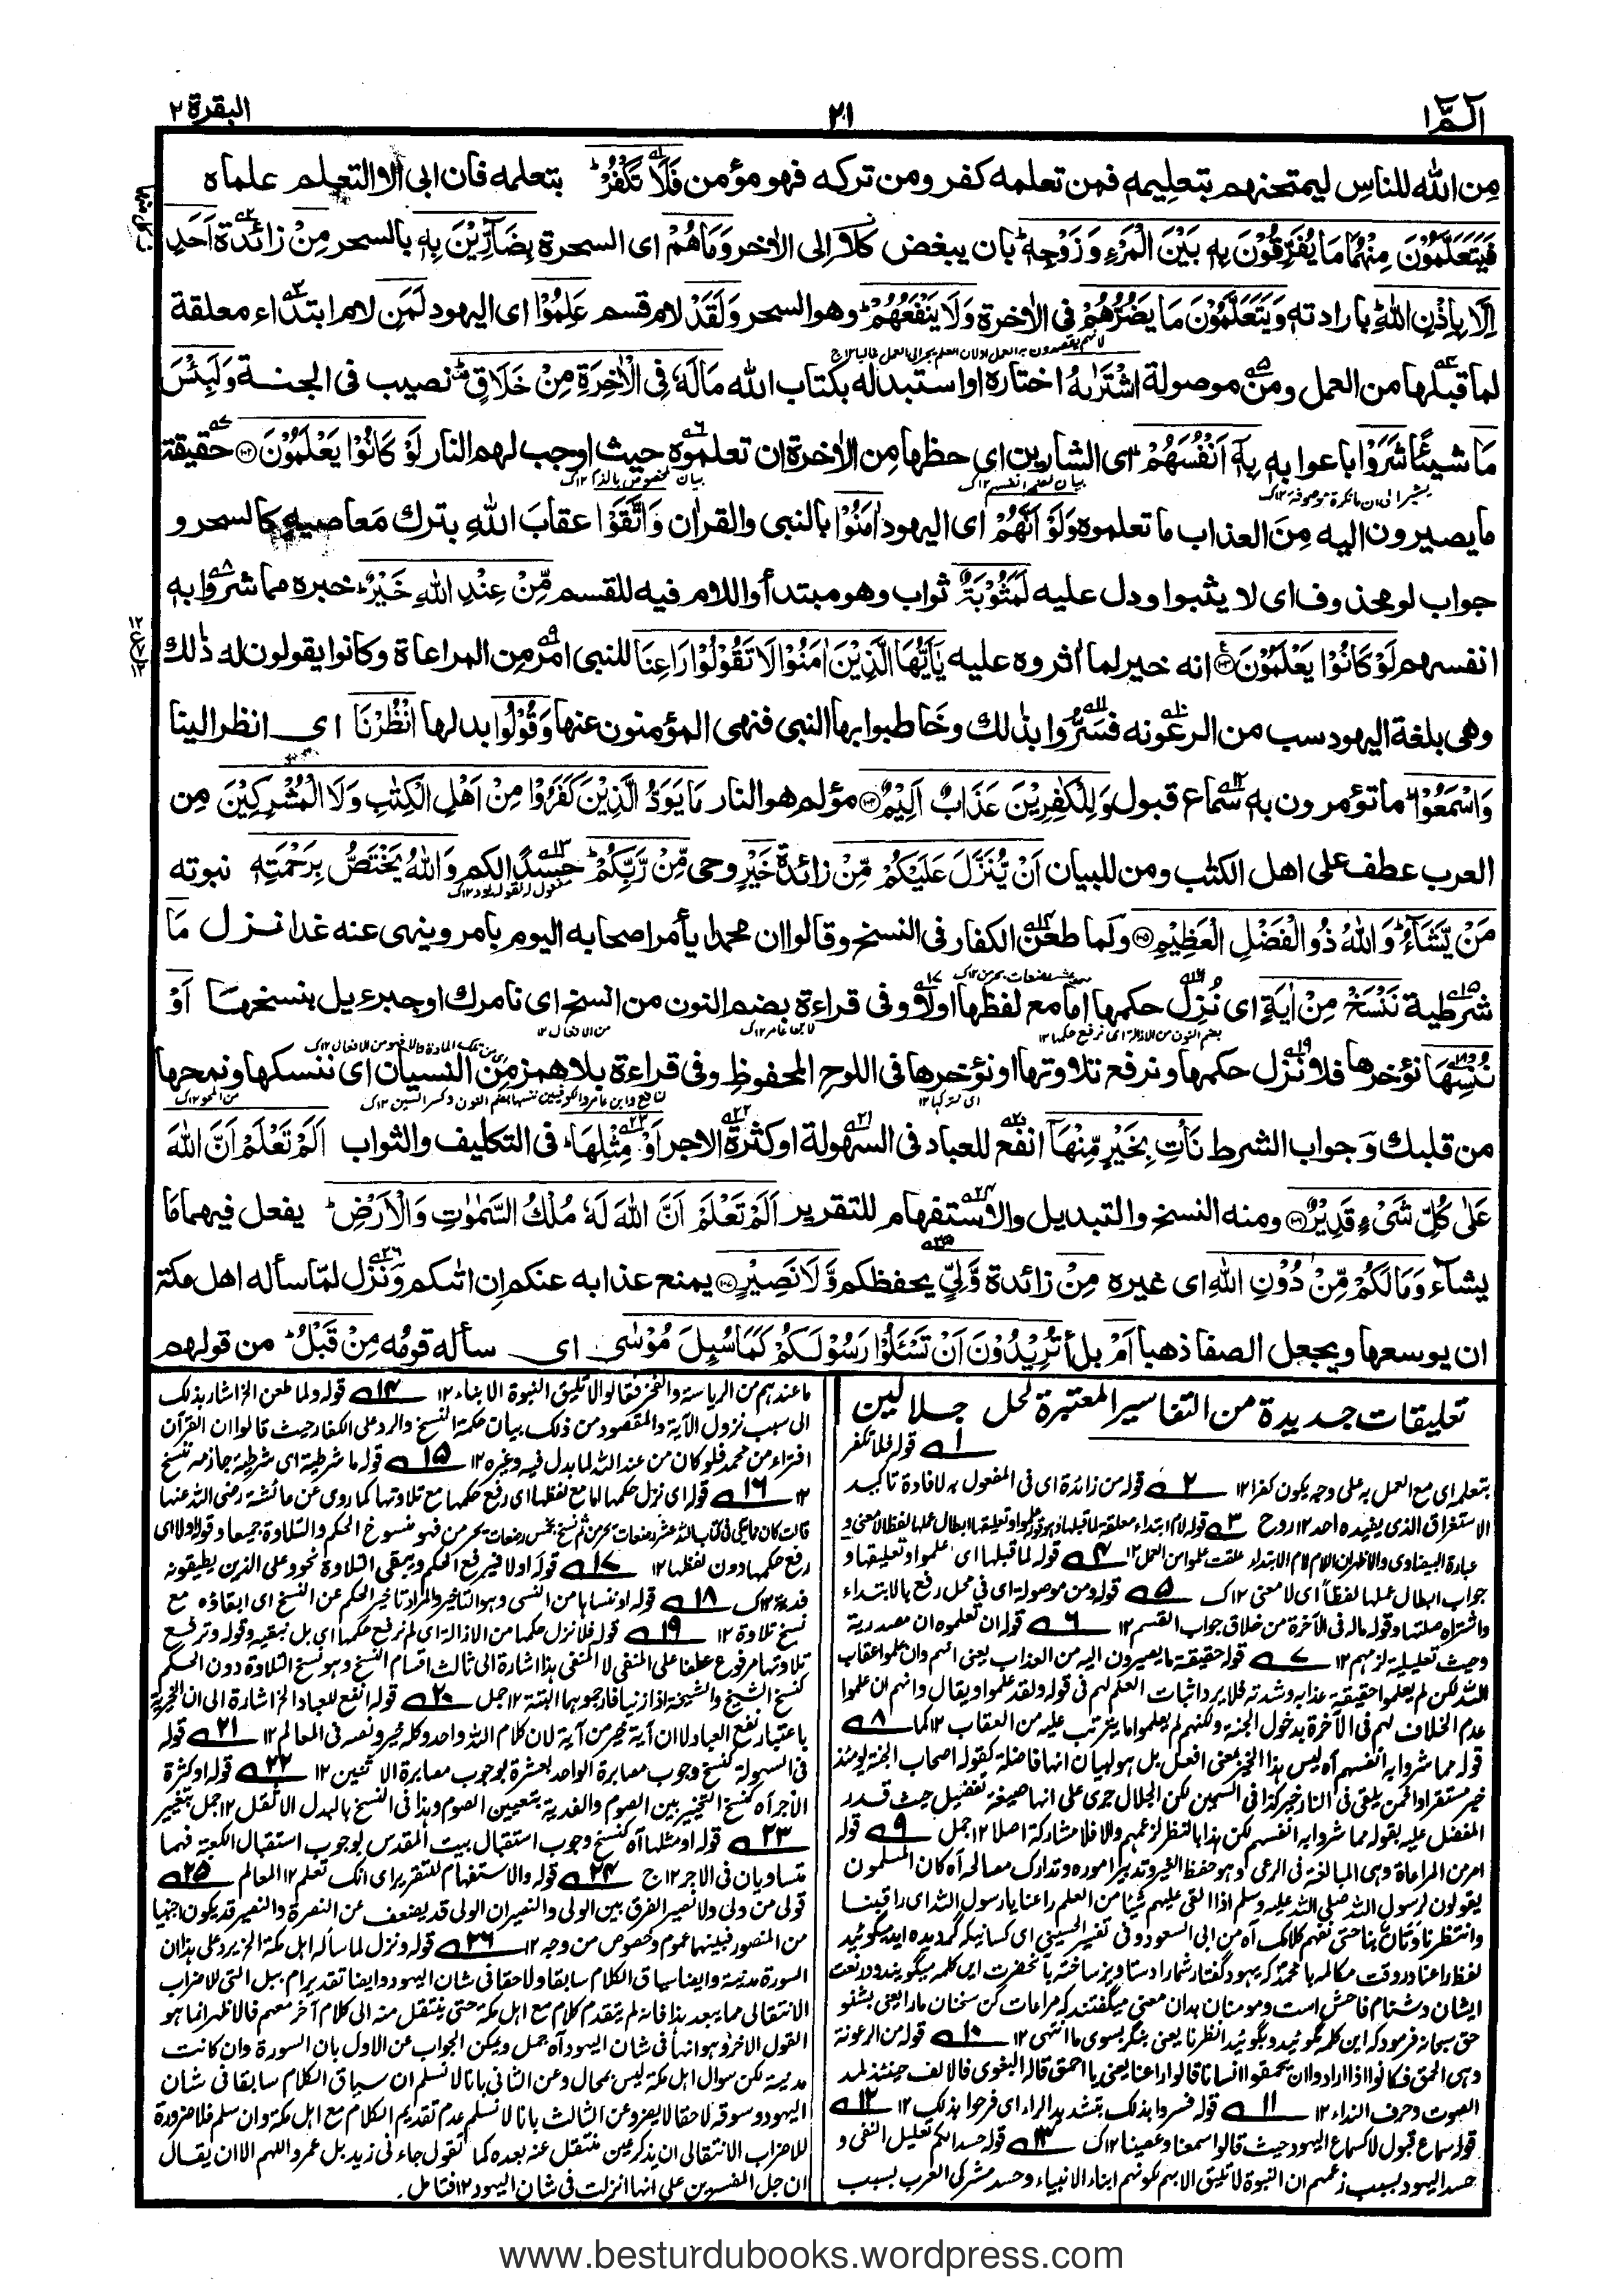 الٓمّٓ ١
٢١
البقرة ٢
مِن الله للناس ليمتحنهم بتعليمه فمن تعلمه كفر ومن تركه فهو مؤمن فَلَا تَكْفُرْ بتعلمه فان ابى الا التعلم علماه
فَيَتَعَلَّمُوْنَ مِنْهُمَا مَا يُفَرِّقُوْنَ بِهٖ بَيْنَ الْمَرْءِ وَزَوْجِهٖ بان يبغض كلا الى الاخر وَمَا هُمْ اى السحرة بِضَآرِّيْنَ بِهٖ بالسحر مِنْ زائدة اَحَدٍ
اِلَّا بِاِذْنِ اللّٰهِ بارادته وَيَتَعَلَّمُوْنَ مَا يَضُرُّهُمْ فى الاٰخرة وَلَا يَنْفَعُهُمْ وهو السحر وَلَقَدْ لام قسم عَلِمُوْا اى اليهود لَمَنِ لام ابتداء معلقة
لما قبلها من العمل ومن موصولة اشْتَرٰىهُ اختاره او استبدله بكتاب الله مَالَهٗ فِى الْاٰخِرَةِ مِنْ خَلَاقٍ نصيب فى الجنة وَلَبِئْسَ
مَا شيئًا شَرَوْا باعوا به بِهٖٓ اَنْفُسَهُمْ اى الشارين اى حظها من الاٰخرة ان تعلموه حيث اوجب لهم النار لَوْ كَانُوْا يَعْلَمُوْنَ حقيقة
ما يصيرون اليه مِنَ العذاب ما تعلموه وَلَوْ اَنَّهُمْ اى اليهود اٰمَنُوْا بالنبى والقران وَاتَّقَوْا عقابَ الله بترك مَعاصيه كالسحر و
جواب لو محذوف اى لا يثبوا ودل عليه لَمَثُوْبَةٌ ثواب وهو مبتدأ واللام فيه للقسم مِّنْ عِنْدِ اللّٰهِ خَيْرٌ خبره مما شروا به
انفسهم لَوْ كَانُوْا يَعْلَمُوْنَ انه خير لما اٰثروه عليه يٰٓاَيُّهَا الَّذِيْنَ اٰمَنُوْا لَا تَقُوْلُوْا رَاعِنَا للنبى امر مِن المراعاة وكانوا يقولون له ذٰلك
وهى بلغة اليهود سب من الرعونه فسَرُّوا بذٰلك وخاطبوا بها النبى فنهى المؤمنون عنها وَقُوْلُوْا بدلها انْظُرْنَا اى انظر الينا
وَاسْمَعُوْا ما تؤمرون به سماع قبول وَلِلْكٰفِرِيْنَ عَذَابٌ اَلِيْمٌ مؤلم هو النار مَا يَوَدُّ الَّذِيْنَ كَفَرُوْا مِنْ اَهْلِ الْكِتٰبِ وَلَا الْمُشْرِكِيْنَ مِن
العرب عطف على اهل الكتٰب ومن للبيان اَنْ يُّنَزَّلَ عَلَيْكُمْ مِّنْ زائدة خَيْرٍ وحى مِّنْ رَّبِّكُمْ حسدًا لكم وَاللّٰهُ يَخْتَصُّ بِرَحْمَتِهٖ نبوته
مَنْ يَّشَآءُ وَاللّٰهُ ذُو الْفَضْلِ الْعَظِيْمِ ولما طعن الكفار فى النسخ وقالوا ان محمدا يأمر اصحابه اليوم بامر وينهى عنه غدا نزل مَا
شرطية نَنْسَخْ مِنْ اٰيَةٍ اى نُزِل حكمها اما مع لفظها اولا وفى قراءة بضم النون من انسخ اى نامرك او جبرءيل بنسخها اَوْ
نُنْسِهَا نؤخرها فلا نزل حكمها ونرفع تلاوتها او نؤخرها فى اللوح المحفوظ وفى قراءة بلا همز من النسيان اى ننسكها ونمحها
من قلبك وَجواب الشرط نَأْتِ بِخَيْرٍ مِّنْهَآ انفع للعباد فى السهولة او كثرة الاجر اَوْ مِثْلِهَا فى التكليف والثواب اَلَمْ تَعْلَمْ اَنَّ اللّٰهَ
عَلٰى كُلِّ شَىْءٍ قَدِيْرٌ ومنه النسخ والتبديل والاستفهام للتقرير اَلَمْ تَعْلَمْ اَنَّ اللّٰهَ لَهٗ مُلْكُ السَّمٰوٰتِ وَالْاَرْضِ يفعل فيهما مَا
يشآء وَمَا لَكُمْ مِّنْ دُوْنِ اللّٰهِ اى غيره مِنْ زائدة وَّلِىٍّ يحفظكم وَّلَا نَصِيْرٍ يمنع عذابه عنكم اِن اتٰكم وَنزل لمّا سأله اهل مكة
ان يوسعها ويجعل الصفا ذهبا اَمْ بل أ تُرِيْدُوْنَ اَنْ تَسْئَلُوْا رَسُوْلَكُمْ كَمَا سُئِلَ مُوْسٰى اى سأله قومُه مِنْ قَبْلُ من قولهم
تعليقات جديدة من التفاسير المعتبرة لحل جلالين
١ قوله فلا تكفر
بتعلمه اى مع العمل به على وجه يكون كفرا ١٢ ٢ قوله من زائدة اى فى المفعول به لافادة تاكيد
الاستغراق الذى يفيده احد ١٢ روح ٣ قوله لام ابتداء معلقة لما قبلها
عبارة البيضاوى والاظهر ان اللام لام الابتداء علقت علموا عن العمل ١٢ ٤ قوله لما قبلها اى علموا وتعليقها و
جواب ابطال عملها لفظًا اى لا معنى ١٢ ك ٥ قوله ومن موصولة اى فى محل رفع بالابتداء
واشتراه صلتها وقوله ماله فى الآخرة من خلاق جواب القسم ١٢ ٦ قوله ان تعلموه ان مصدرية
وحيث تعليلية لزمهم ١٢ ٧ قوله حقيقة ما يصيرون اليه من العذاب يعنى انهم وان علموا عقاب
الله لكن لم يعلموا حقيقة عذابه وشدته فلا يرد اثبات العلم لهم فى قوله ولقد علموا ويقال وانهم ان علموا
عدم الخلاف لهم فى الآخرة بدخول الجنة ولكنهم لم يعلموا ما يترتب عليه من العقاب ١٢ كما ٨
قوله مما شروا به انفسهم آه ليس هذا الخير بمعنى افعل بل هو لبيان انها فاضلة كقوله اصحاب الجنة يومئذ
خير مستقرا وافمن يلقى فى النار خير كذا فى السمين لكن الجلال جرى على انها صيغة تفضيل حيث قدر
المفضل عليه بقوله مما شروا به انفسهم لكن هذا بالنظر لزعمهم والا فلا مشاركة اصلا ١٢ جمل ٩ قوله
امر من المراعاة وهى المبالغة فى الرعى وهو حفظ الغير وتدبير اموره وتدارك مصالحه آه كان المسلمون
يقولون لرسول الله صلى الله عليه وسلم اذا القى عليهم شيئا من العلم راعنا يا رسول الله اى راقبنا
وانتظرنا وتأنّ بنا حتى نفهم كلامك آه من ابى السعود وفى تفسير الحسينى اى كسانيكه گرويده ايد ميگوئيد
لفظ راعنا در وقت مكالمه با محمد كه يهود گفتار شما را دستاويز ساخته با آنحضرت اين كلمه ميگويند ودر لغت
ايشان دشنام فاحش است ومومنان بدان معنى ميگفتند كه مراعات كن سخنان ما را يعنى بشنو
حق سبحانه فرمود كه اين كلمه مگوئيد وبگوئيد انظرنا يعنى بنگر بسوى ما انتهى ١٢ ١٠ قوله من الرعونة
وهى الحمق فكانوا اذا ارادوا ان يحمقوا انسانا قالوا راعنا يعنى يا احمق قاله البغوى فالالف حينئذ لمد
الصوت وحرف النداء ١٢ ١١ قوله فسروا بذلك بتشديد الراء اى فرحوا بذلك ١٢ ١٢
قوله سماع قبول لا كسماع اليهود حيث قالوا سمعنا وعصينا ١٢ ك ١٣ قوله حسدا لكم تعليل النفى و
حسد اليهود بسبب زعمهم ان النبوة لا تليق الا بهم لكونهم ابناء الانبياء وحسد مشركى العرب بسبب
ما عندهم من الرياسة والفخر فقالوا لا تليق النبوة الا بنا ١٢ ١٤ قوله ولما طعن الخ اشار بذلك
الى سبب نزول الآية والمقصود من ذلك بيان حكمة النسخ والرد على الكفار حيث قالوا ان القرآن
افتراء من محمد فلو كان من عند الله لما بدل فيه وغيره ١٢ ١٥ قوله ما شرطية اى شرطية جازمة لننسخ
١٢ ١٦ قوله اى نزل حكمها اما مع لفظها اى رفع حكمها مع تلاوتها كما روى عن عائشة رضى الله عنها
قالت كان مما يتلى فى كتاب الله عشر رضعات يحرمن ثم نسخ بخمس رضعات يحرمن فهو منسوخ الحكم والتلاوة جميعا وقوله اولا اى
رفع حكمها دون لفظها ١٢ ١٧ قوله اولا فيرفع الحكم ويبقى التلاوة نحو وعلى الذين يطيقونه
فدية ١٢ ك ١٨ قوله او ننساها من النسى وهو التاخير والمراد تاخير الحكم عن النسخ اى ابقاءه مع
نسخ تلاوة ١٢ ١٩ قوله فلا نزل حكمها من الازالة اى لم نرفع حكمها اى بل نبقيه وقوله ونرفع
تلاوتها مرفوع عطفا على المنفى لا النفى هذا اشارة الى ثالث اقسام النسخ وهو نسخ التلاوة دون الحكم
كنسخ الشيخ والشيخة اذا زنيا فارجموهما البتة ١٢ جمل ٢٠ قوله انفع للعباد الخ اشارة الى ان الخيرية
باعتبار نفع العباد لا ان آية خير من آية لان كلام الله واحد وكله خير ونصه فى المعالم ١٢ ٢١ قوله
فى السهولة كنسخ وجوب مصابرة الواحد لعشرة بوجوب مصابرة الاثنين ١٢ ٢٢ قوله او كثرة
الأجر آه كنسخ التخيير بين الصوم والفدية بتعيين الصوم وهذا فى النسخ بالبدل الاثقل ١٢ جمل بتغيير
٢٣ قوله او مثلها آه كنسخ وجوب استقبال بيت المقدس بوجوب استقبال الكعبة فهما
متساويان فى الاجر ١٢ ج ٢٤ قوله والاستفهام للتقرير اى انك تعلم ١٢ المعالم ٢٥
قوله من ولى ولا نصير الفرق بين الولى والنصير ان الولى قد يضعف عن النصرة والنصير قد يكون اجنبيا
من المنصور فبينهما عموم وخصوص من وجه ١٢ ٢٦ قوله ونزل لما سأله اهل مكة الخ يرد على هذا ان
السورة مدنية وايضا سياق الكلام سابقا ولاحقا فى شان اليهود وايضا تقدير ام ببل التى للاضراب
الانتقالى مما يبعد هذا فانه لم يتقدم كلام مع اهل مكة حتى ينتقل منه الى كلام آخر معهم فالاظهر انما هو
القول الاخر وهو انها فى شان اليهود آه جمل ويمكن الجواب عن الاول بان السورة وان كانت
مدنية لكن سوال اهل مكة ليس بمحال وعن الثانى بانا لا نسلم ان سياق الكلام سابقا فى شان
اليهود وسوقه لاحقا لا يضره وعن الثالث بانا لا نسلم عدم تقديم الكلام مع اهل مكة وان سلم فلا ضرورة
للاضراب الانتقالى ان يذكر عين منتقل عنه بعده كما تقول جاءنى زيد بل عمرو اللهم الا ان يقال
ان جل المفسرين على انها انزلت فى شان اليهود ١٢ فتامل.
www.besturdubooks.wordpress.com